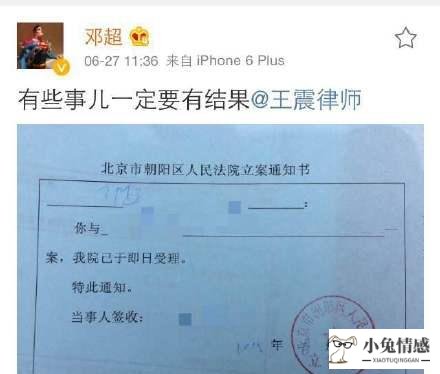 邓超
06-27 11:36 来自 iPhone 6 Plus
有些事儿一定要有结果@王震律师
北京市朝阳区人民法院立案通知书
：
你与
案，我院已于即日受理。
特此通知。
当事人签收：
年
北京市朝阳区人民
小兔情感
XIAOTUQINGGAN